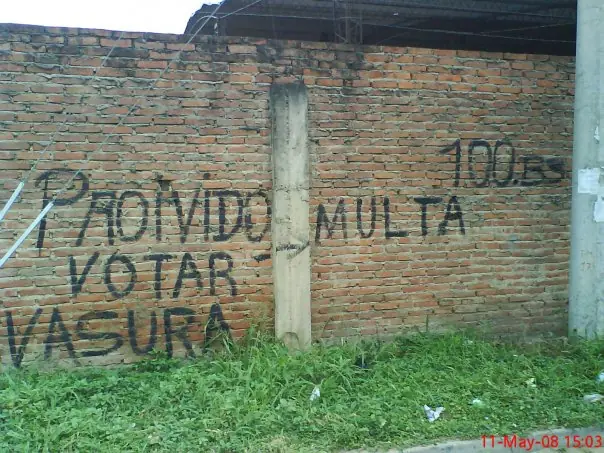 PROiViDO
VOTAR
VASURA
→ MULTA
100.BS
11-May-08 15:03